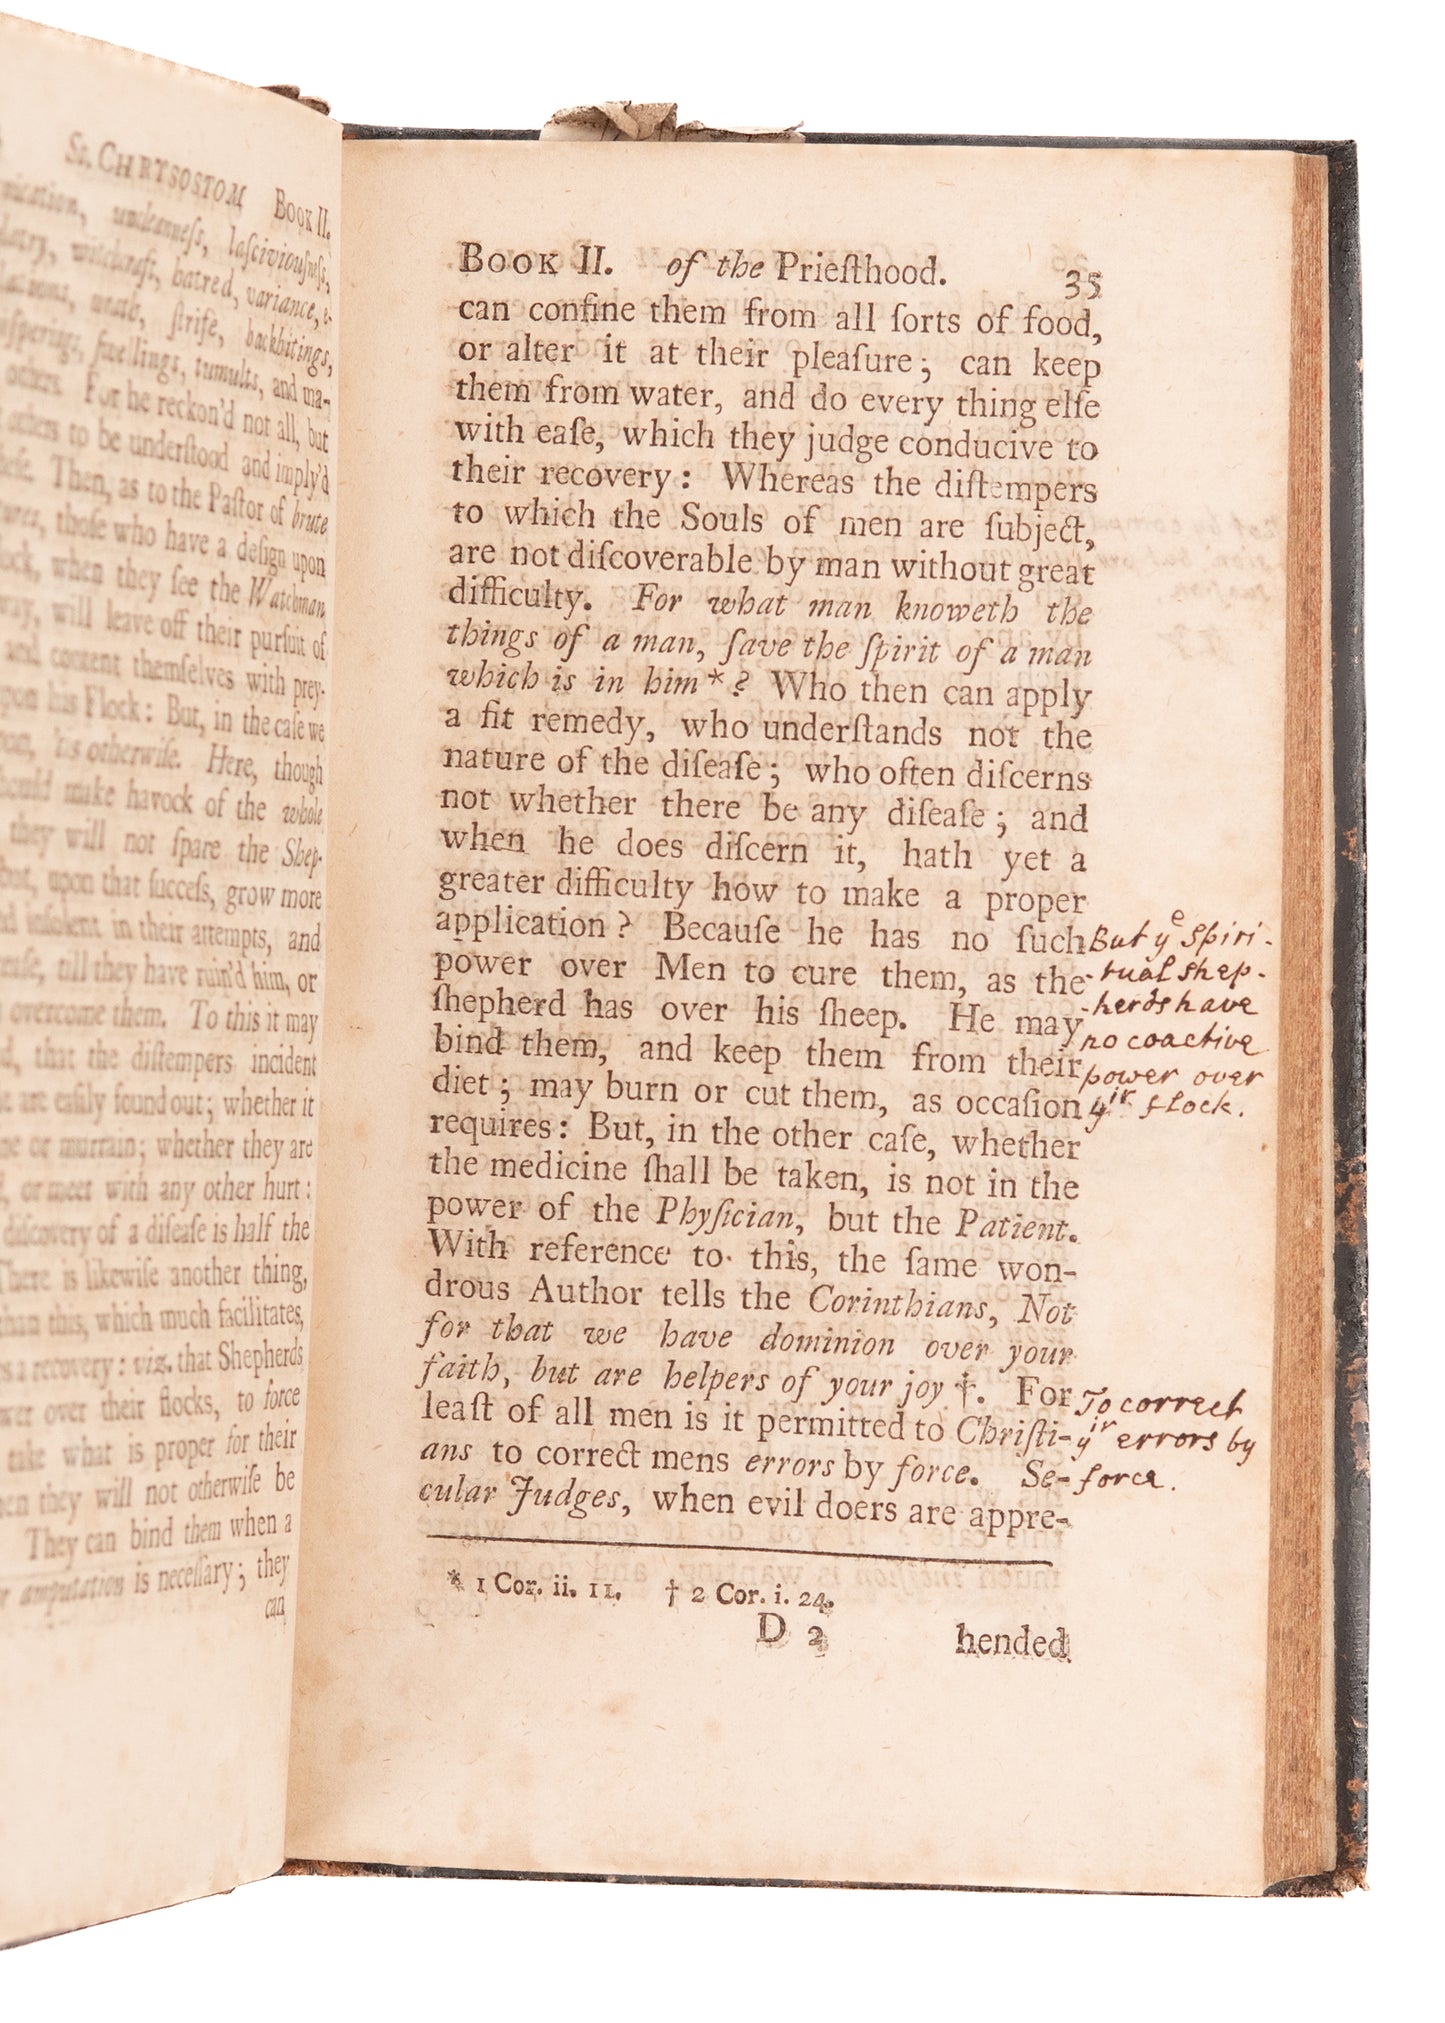 St. CHRYSOSTOM Book II.
nication, uncleanneſs, laſciviouſneſs,
witchcraft, hatred, variance,
ſtrife, backbitings,
ſwellings, tumults, and ma-
others. For he reckon'd not all, but
others to be underſtood and imply'd
Then, as to the Paſtor of brute
thoſe who have a deſign upon
when they ſee the Watchman
will leave off their purſuit of
and content themſelves with prey-
upon his Flock: But, in the caſe we
'tis otherwiſe. Here, though
ſhould make havock of the whole
they will not ſpare the Shep-
but, upon that ſucceſs, grow more
inſolent in their attempts, and
till they have ruin'd him, or
overcome them. To this it may
that the diſtempers incident
are eaſily found out; whether it
or murrain; whether they are
or meet with any other hurt:
diſcovery of a diſeaſe is half the
There is likewiſe another thing,
than this, which much facilitates,
a recovery: viz. that Shepherds
over their flocks, to force
take what is proper for their
they will not otherwiſe be
They can bind them when a
or amputation is neceſſary; they
can
BOOK II. of the Prieſthood. 35
can confine them from all ſorts of food,
or alter it at their pleaſure; can keep
them from water, and do every thing elſe
with eaſe, which they judge conducive to
their recovery: Whereas the diſtempers
to which the Souls of men are ſubject,
are not diſcoverable by man without great
difficulty. For what man knoweth the
things of a man, ſave the ſpirit of a man
which is in him*? Who then can apply
a fit remedy, who underſtands not the
nature of the diſeaſe; who often diſcerns
not whether there be any diſeaſe; and
when he does diſcern it, hath yet a
greater difficulty how to make a proper
application? Becauſe he has no ſuch
power over Men to cure them, as the
ſhepherd has over his ſheep. He may
bind them, and keep them from their
diet; may burn or cut them, as occaſion
requires: But, in the other caſe, whether
the medicine ſhall be taken, is not in the
power of the Phyſician, but the Patient.
With reference to this, the ſame won-
drous Author tells the Corinthians, Not
for that we have dominion over your
faith, but are helpers of your joy †. For
leaſt of all men is it permitted to Chriſti-
ans to correct mens errors by force. Se-
cular Judges, when evil doers are appre-
* 1 Cor. ii. 11. † 2 Cor. i. 24.
D 2 hended
But yᵉ Spiri-
-tual Shep-
-herds have
no coactive
power over
yⁱʳ flock.
To correct
yⁱʳ errors by
force.